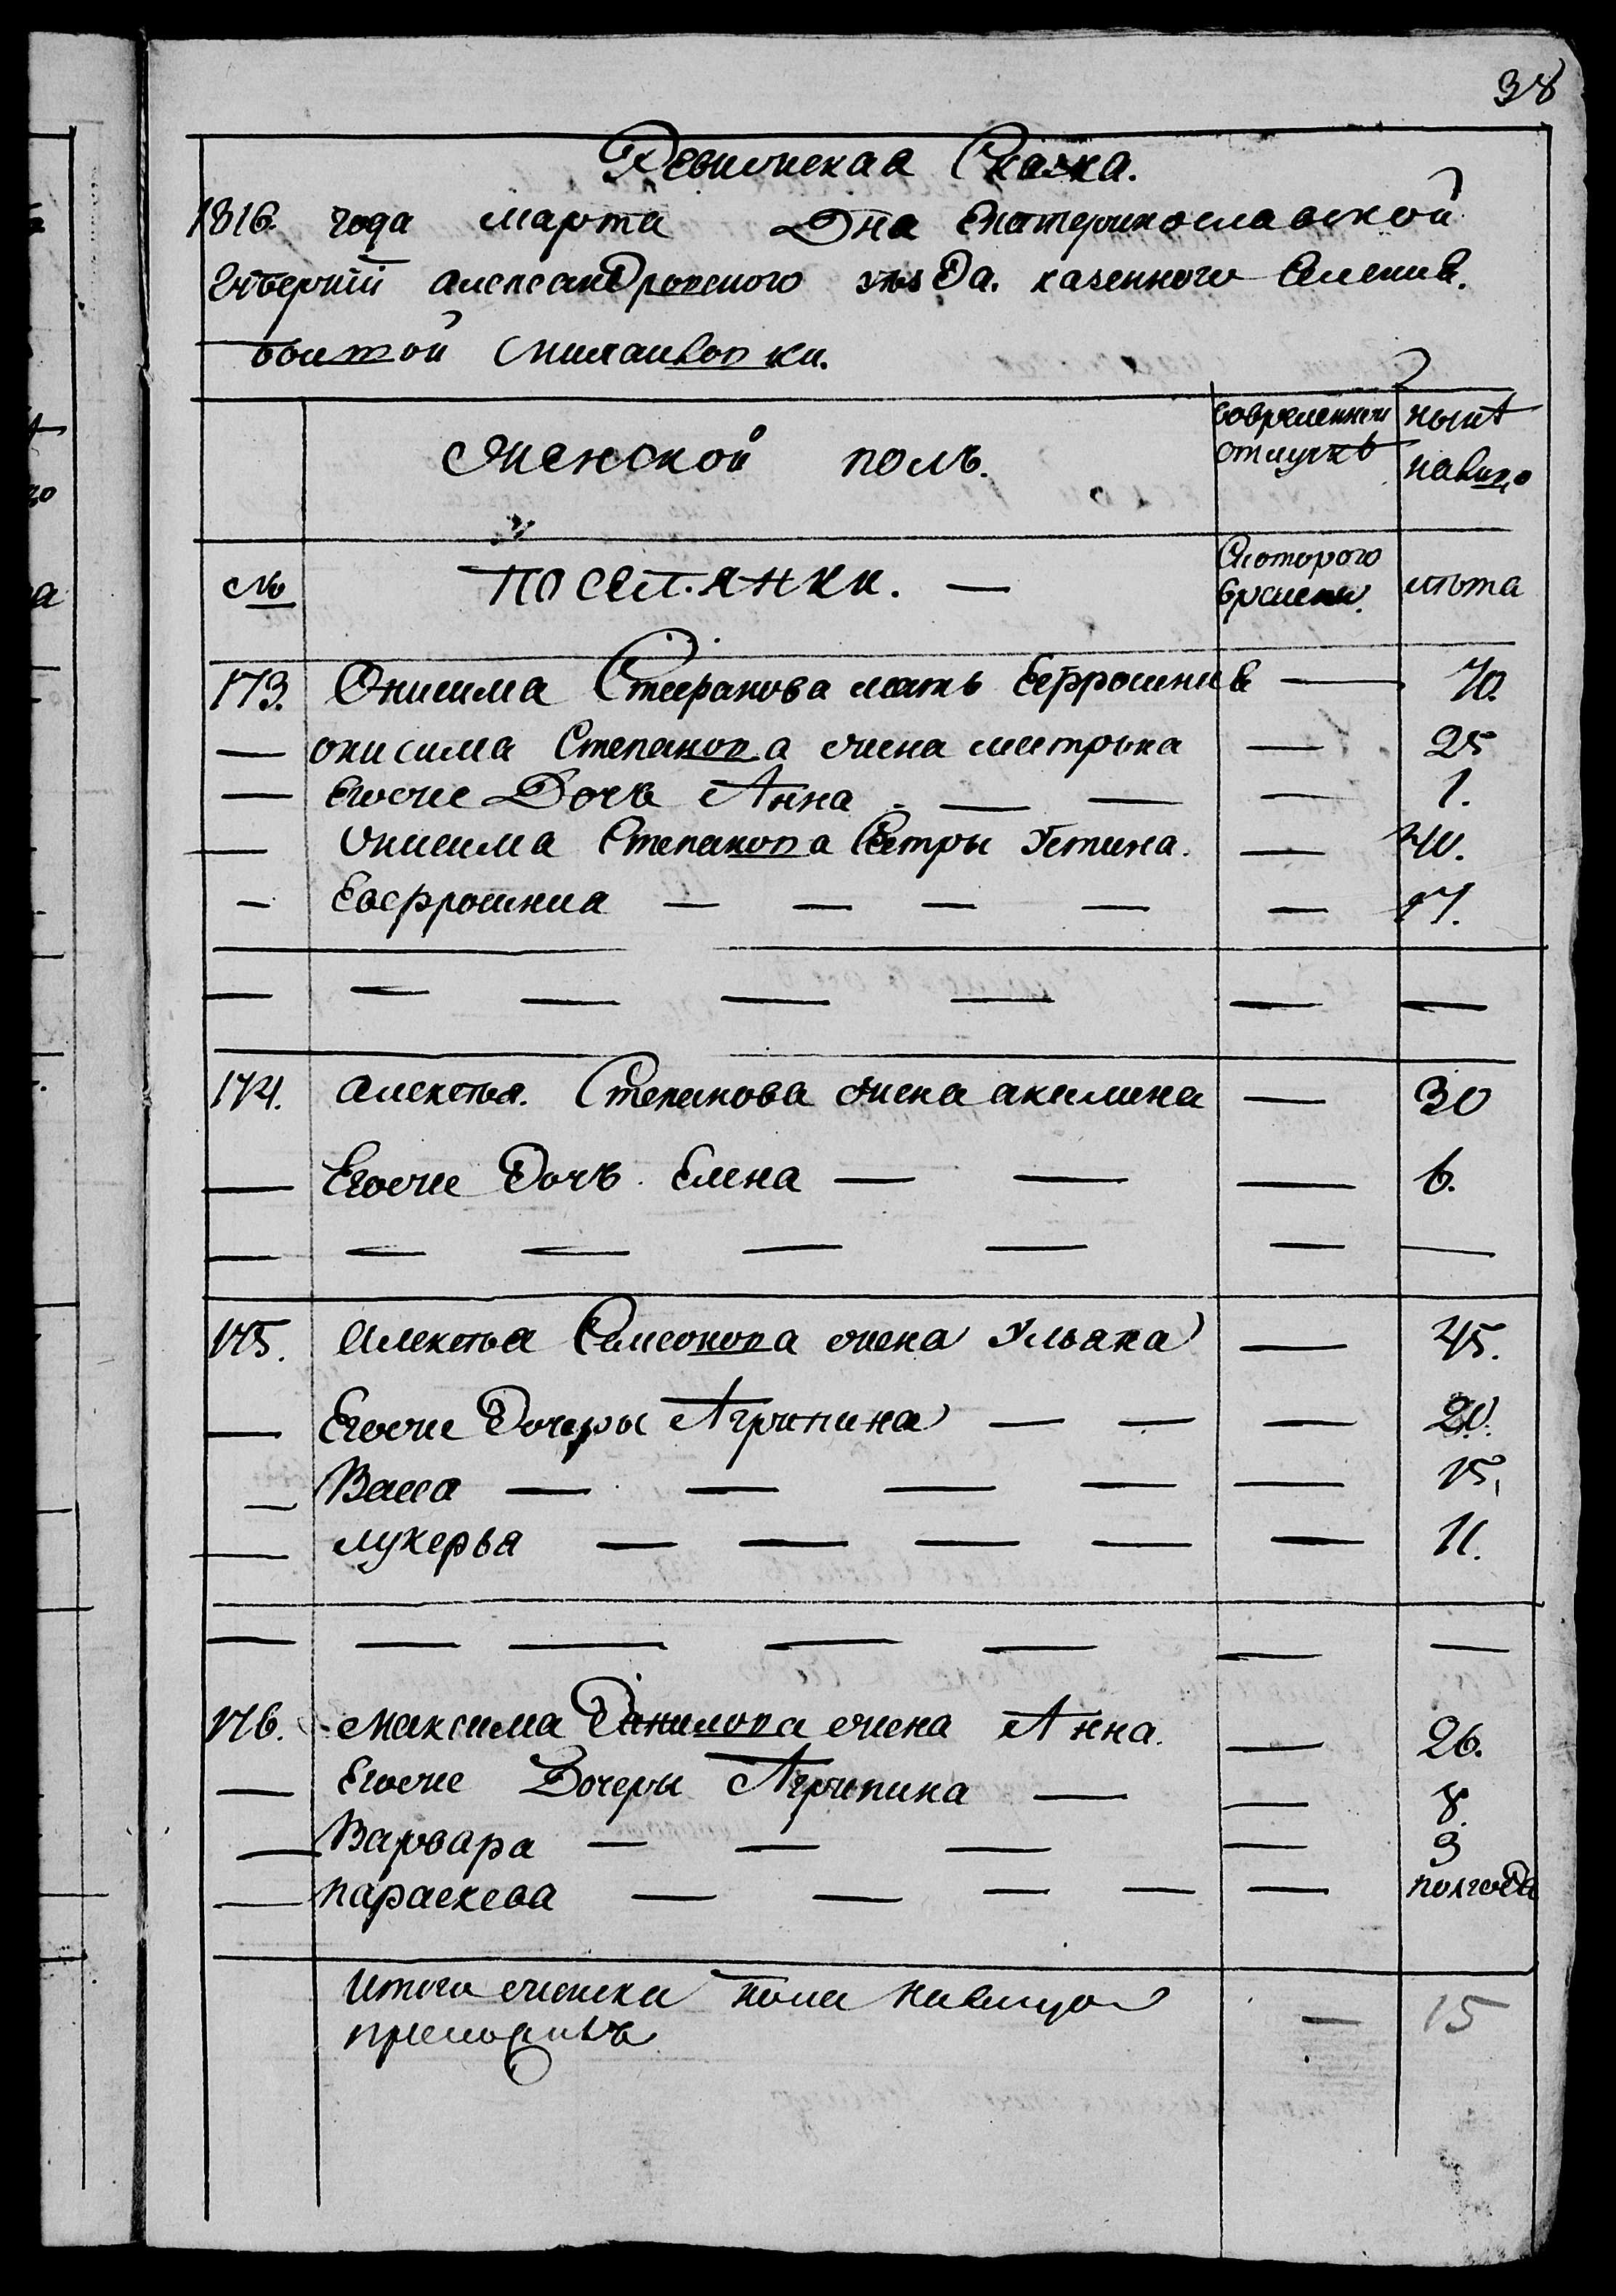 38
Ревизская Сказка.
1816. года марта Дня Екатеринославской
Губернїи александровского уѣзда. казенного Селения.
Женской полъ.
во временной отлучкѣ
нынѣ налицо
№
поселянки. —
Скоторого времени.
лѣта
173. Онисима Стефанова мать Ефросиния — 70.
— онисима Степанова жена матрона — 25
— Егоже Дочь Анна — — — 1.
— Онисима Степанова Сестры Устина. — 40.
— Евфросиния — — — — — 17.
— — — — — — —
174. алексѣя. Степанова жена акилина — 30
— Егоже Дочь Елена — — — 6.
— — — — — — —
175. Алексѣя Самсонова жена Ульяна — 45.
— Егоже Дочеры Агрипина — — — 20.
— Васса — — — — — 15.
— лукерья — — — — — 11.
— — — — — — —
176. Максима Данилова жена Анна. — 26.
— Егоже Дочеры Агрипина — — 8.
— Варвара — — — — 9
— параскева — — — — — полгода
Итого женска пола налицо — 15